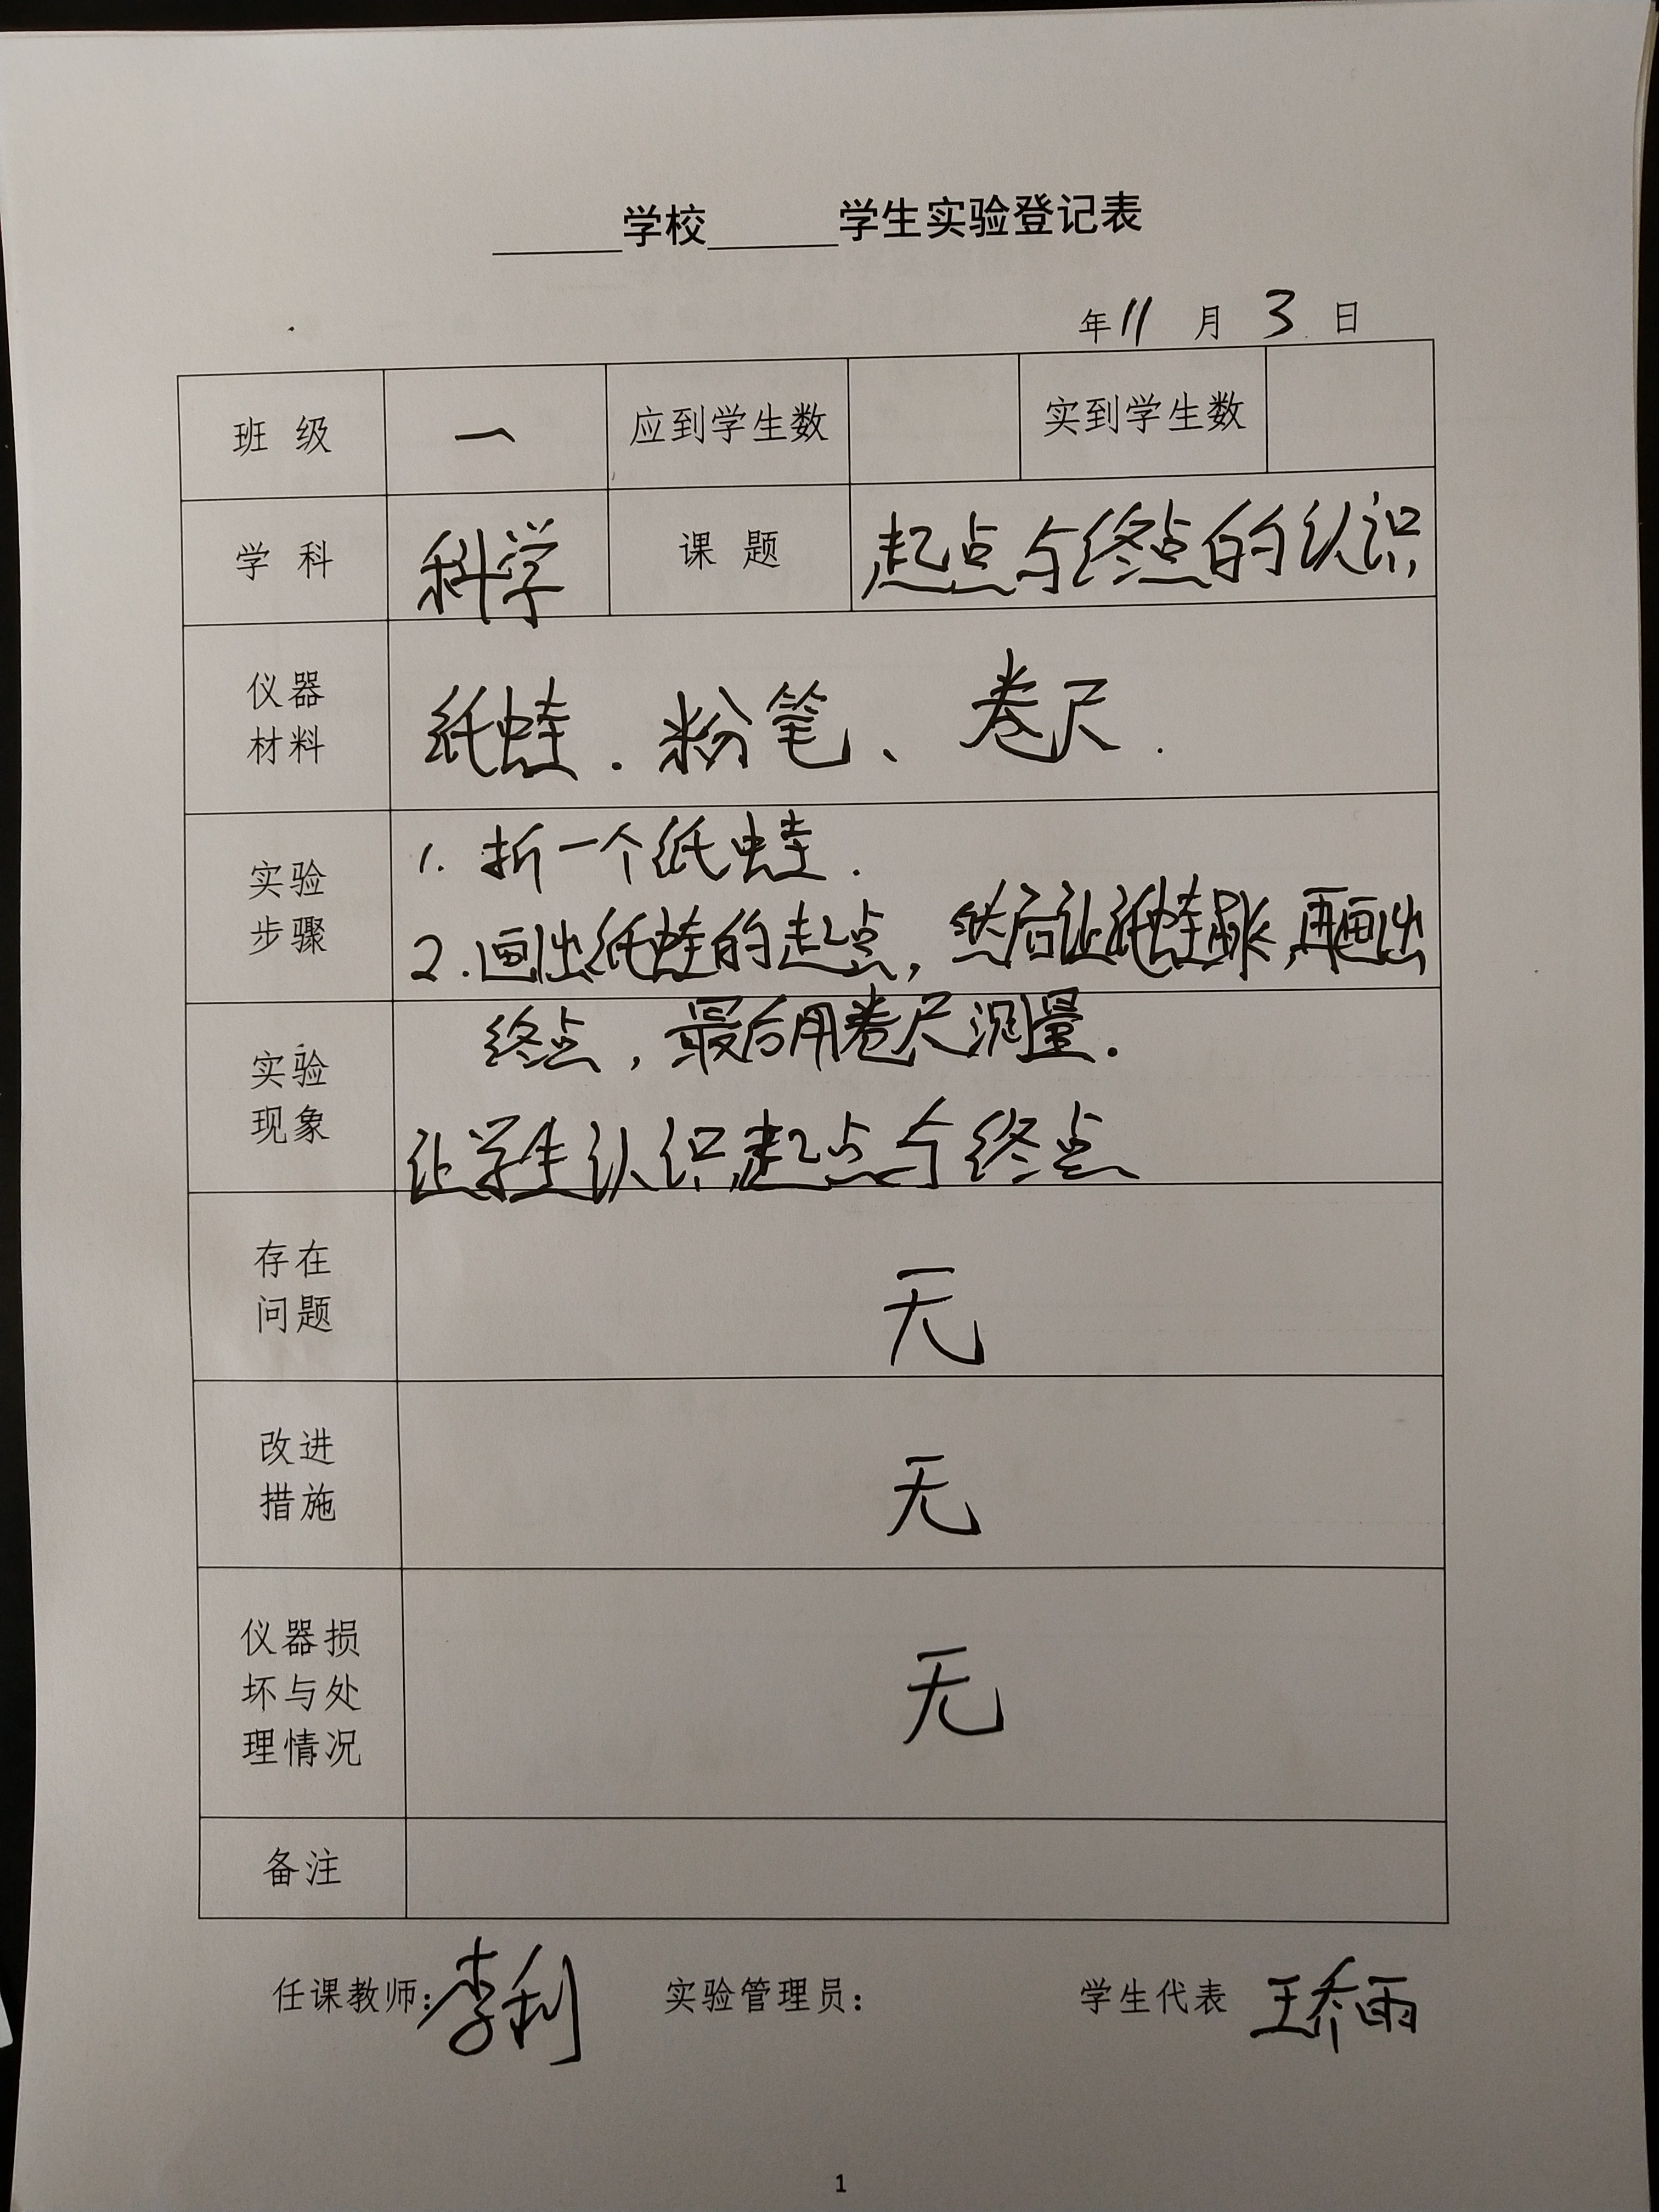 ______学校______学生实验登记表
年11月3日
班级 一 应到学生数 实到学生数
学科 科学 课题 起点与终点的认识
仪器
材料
纸蛙.粉笔、卷尺.
实验
步骤
1.折一个纸蛙.
2.画出纸蛙的起点,然后让纸蛙跳,再画出
终点,最后用卷尺测量.
实验
现象
让学生认识起点与终点
存在
问题
无
改进
措施
无
仪器损
坏与处
理情况
无
备注
任课教师:李利 实验管理员: 学生代表 王乔雨
1